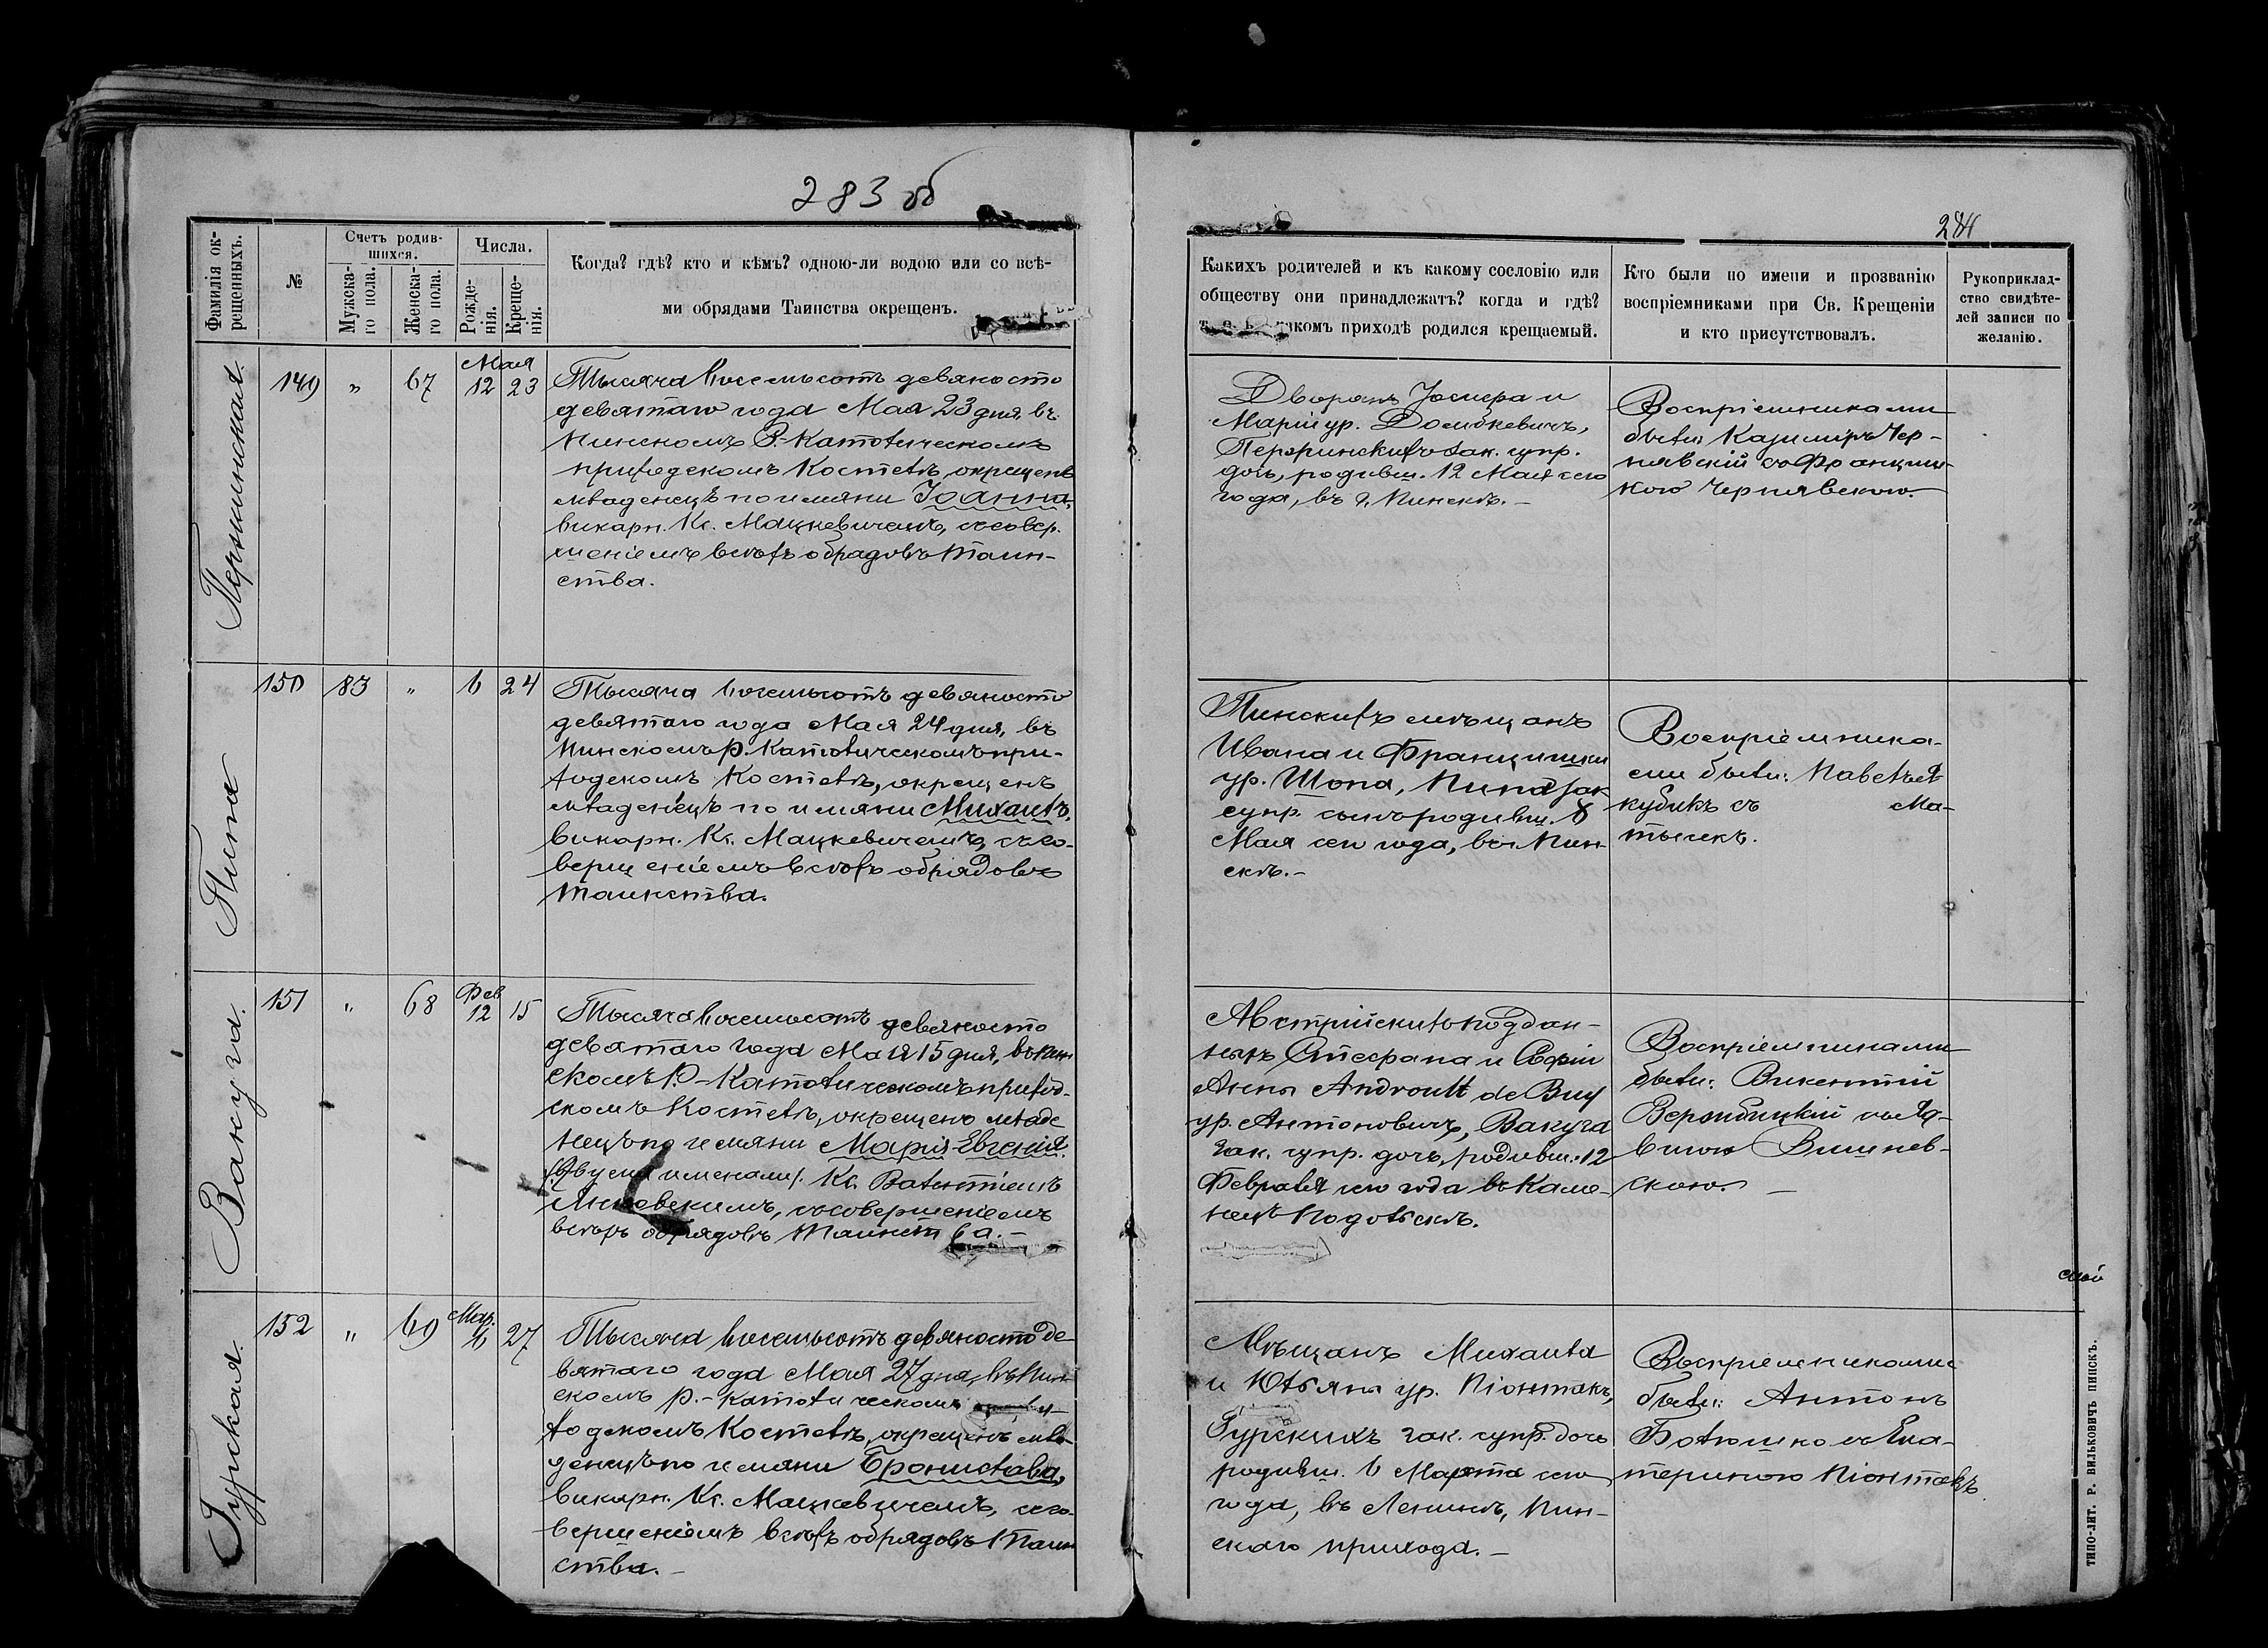 283 об
Фамилія ок-
рещенныхъ.
№
Счетъ родив-
шихся.
Мужска-
го пола.
Женска-
го пола.
Числа.
Рожде-
нія.
Креще-
нія.
Когда? гдѣ? кто и кѣмъ? одною-ли водою или со всѣ-
ми обрядами Таинства окрещенъ.
149 „ 67
Мая
12 23
Тысяча восемьсотъ девяносто
девятаго года Мая 23 дня, въ
Пинскомъ Р.-Католическомъ
приходскомъ Костелѣ, окрещенъ
младенецъ по имяни Іоанна,
викарн. Кс. Мацкевичемъ, съ совер.
шеніемъ всѣхъ обрядовъ Таин-
ства.
Пипа
150 83 „ 6 24
Тысяча восемьсотъ девяносто
девятаго года Мая 24 дня, въ
Пинскомъ Р. Католическомъ при-
ходскомъ Костелѣ, окрещенъ
младенецъ по имяни Михаилъ,
викарн. Кс. Мацкевичемъ, съ со-
вершеніемъ всѣхъ обрядовъ
Таинства.
Вакуга.
151 „ 68
Фев
12 15
Тысяча восемьсотъ девяносто
девятаго года Мая 15 дня, въ Пин
скомъ Р.-Католическомъ приход-
скомъ Костелѣ, окрещенъ младе
нецъ по имяни Марія-Евгенія
/двумя именами/. Кс. Валентіемъ
съ совершеніемъ
всѣхъ обрядовъ Таинства.-
Гурская.
152 „ 69
Мар.
6 27
Тысяча восемьсотъ девяносто де-
вятаго года Мая 27 дня, въ Пин-
скомъ Р.-Католическомъ при-
ходскомъ Костелѣ, окрещенъ мла-
денецъ по имяни Бронислава,
викарн. Кс. Мацкевичемъ, съ со-
вершеніемъ всѣхъ обрядовъ Таин
ства.-
284
Какихъ родителей и къ какому сословію или
обществу они принадлежатъ? когда и гдѣ?
какомъ приходѣ родился крещаемый.
Кто были по имени и прозванію
воспріемниками при Св. Крещеніи
и кто присутствовалъ.
Рукоприклад-
ство свидѣте-
лей записи по
желанію.
Дворянъ Іосифа и
Маріи ур. Домбкевичъ,
зак. супр.
дочь, родивш. 12 Мая сего
года, въ г. Пинскѣ.-
Воспріемниками
были: Казиміръ Чер-
нявскій съ Францишк-
кою Чернявскою.
Пинскихъ мѣщанъ
Ивана и Францишки
ур. Шопа, Пипа зак
супр. сынъ родивш. 6
Мая сего года, въ Пин-
скѣ.-
Воспріемника-
ми были: Павелъ Я-
кубикъ съ Ма-
тысекъ.
Австрійскихъ поддан-
ныхъ Стефана и Софіи
Анны Androult de Buy
ур. Антоновичъ, Вакуга
зак. супр. дочь, родивш. 12
Февраля сего года въ Каме-
нецъ Подольскѣ.
Воспріемниками
были: Викентій
Вержбицкій съ Яд-
вигою Вишнев-
скою. -
Мѣщанъ Михаила
и Юльяны ур. Піонтакъ,
Гурскихъ зак. супр. дочь
родивш. 6 Марта сего
года, въ Ленинѣ, Пин-
скаго прихода.-
Воспріемниками
были: Антонъ
Болюшко съ Ека-
териною Піонтакъ
ТИПО-ЛИТ. Р. ВИЛЬКОВИЧЪ ПИНСКЪ.